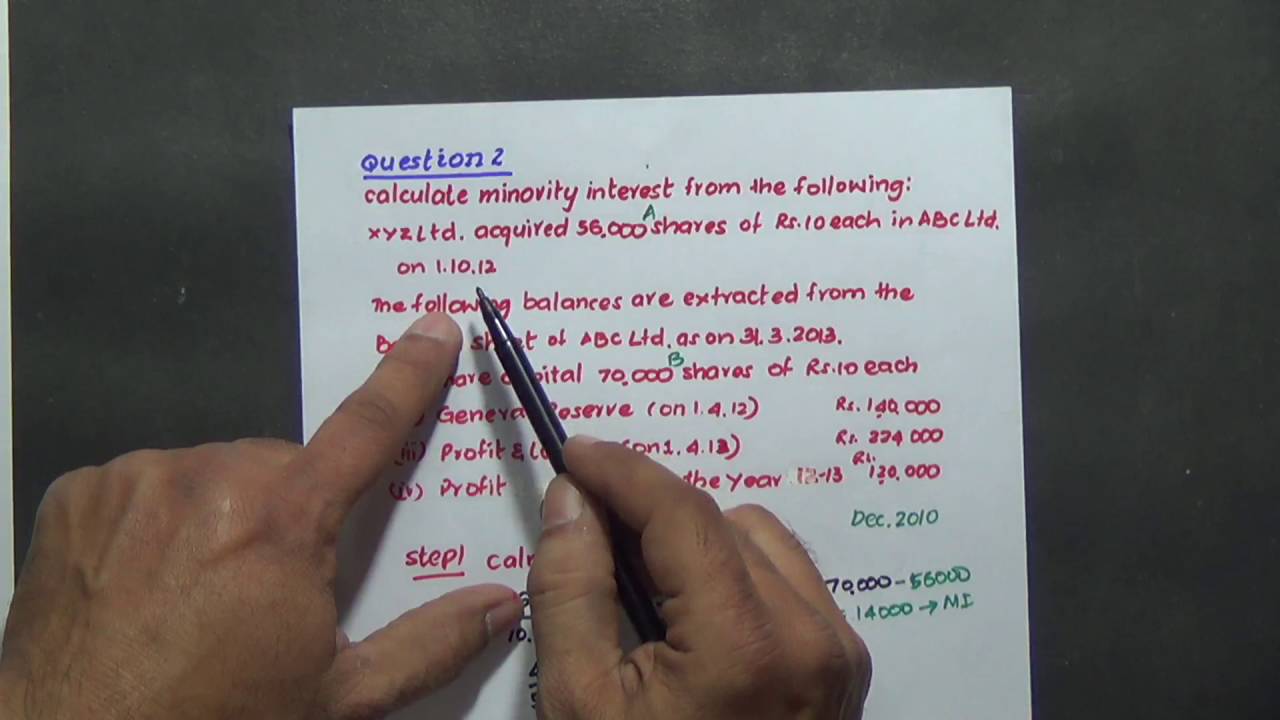 Question 2
calculate minority interest from the following:
xyz Ltd. acquired 56,000 A shares of Rs.10 each in ABC Ltd.
on 1.10.12
The following balances are extracted from the
sheet of ABC Ltd. as on 31.3.2013.
capital 70,000 B shares of Rs.10 each
General Reserve (on 1.4.12) Rs. 140,000
(iii) Profit & on 1.4.12) Rs. 224 000
(iv) Profit the year 12-13 Rs. 120,000
Dec. 2010
step1
70,000 - 56000
14000 → MI
10.